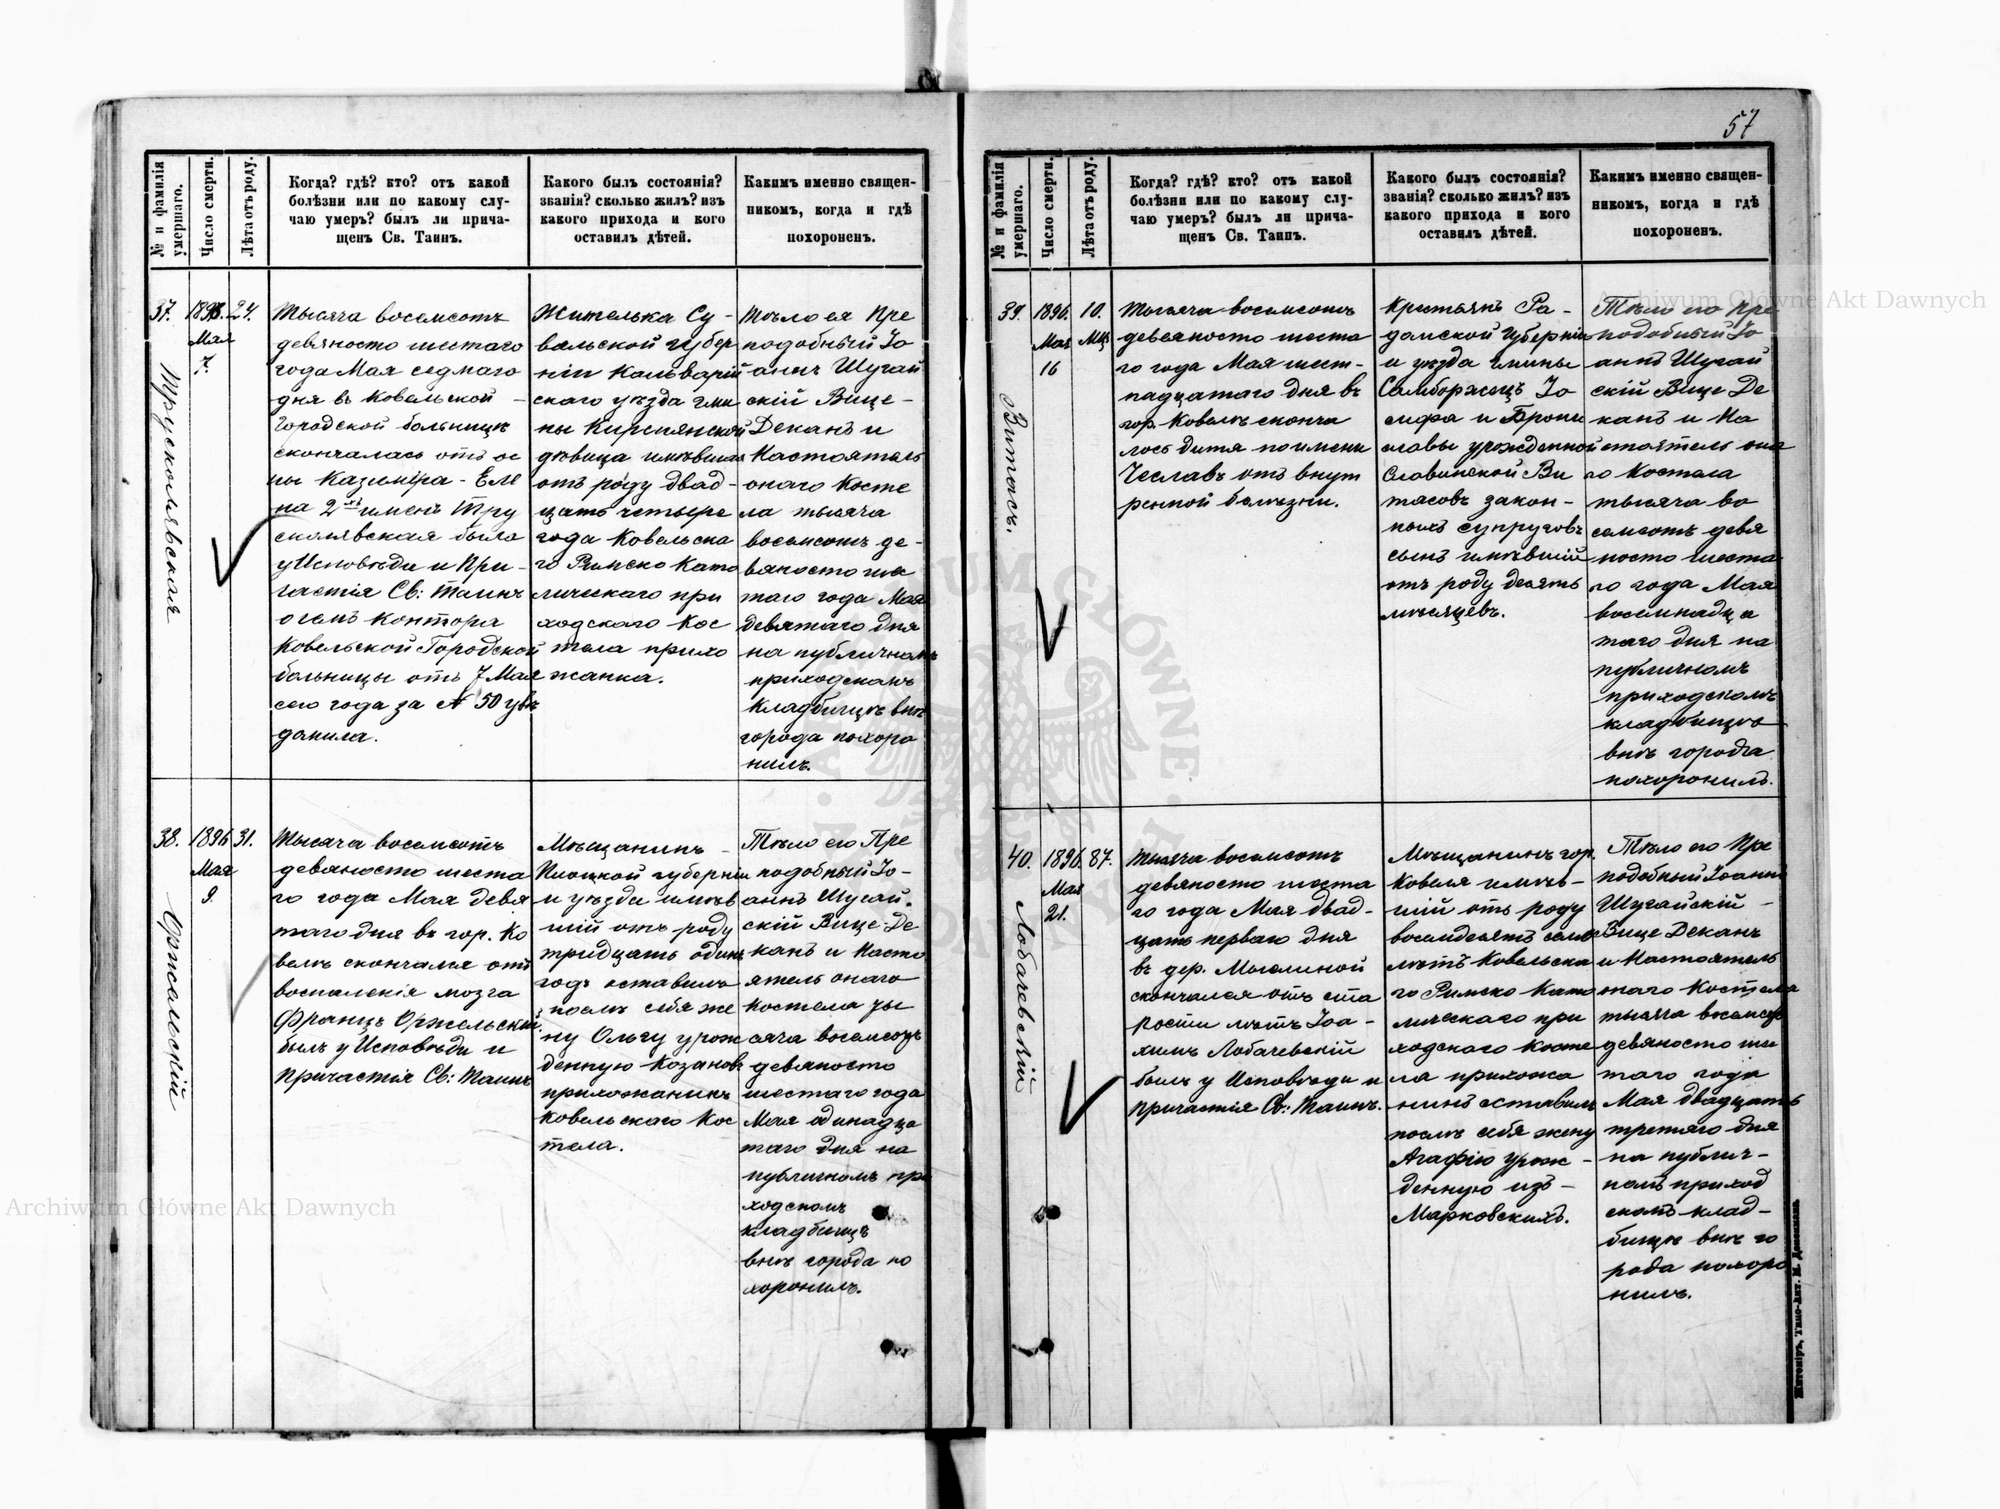 57
№ и фамилія умершаго.
Число смерти.
Лѣта отъ роду.
Когда? гдѣ? кто? отъ какой
болѣзни или по какому слу-
чаю умеръ? былъ ли прича-
щенъ Св. Таинъ.
Какого былъ состоянія?
званія? сколько жилъ? изъ
какого прихода и кого
оставилъ дѣтей.
Каким именно священ-
никомъ, когда и гдѣ
похороненъ.
37.
1896.
Мая
7.
24.
Тысяча восемсотъ
девяносто шестаго
года Мая седмаго
дня въ Ковельской
Городской больницѣ
скончалась отъ ос
пы Казиміра-Еле
на 2хъ именъ Тру
сколявская была
у Исповѣди и При-
частія Св: Таинъ
о чемъ Контора
Ковельской Городской
больницы отъ 7 Мая
сего года за № 50 уве
домила.
Жителька Су-
валской губер
ніи Кальварій
скаго уѣзда гми
ны
дѣвица имѣвшая
отъ роду двад-
цать четыре
года Ковельска
го Римско Като
лическаго при
ходскаго Кос
тела прихо
жанка.
Тѣло ея Пре
подобный Іо
аннъ Шугай
скій Вице-
Деканъ и
Настоятель
онаго Косте
ла тысяча
восемсотъ де-
вяносто шес
таго года Мая
девятаго дня
на публичномъ
приходскомъ
кладбищѣ внѣ
города похоро
нилъ.
38.
1896
Мая
9.
31.
Оржелескій
Тысяча восемсотъ
девяносто шеста
го года Мая девя
таго дня въ гор. Ко
велѣ скончался отъ
воспаленія мозга
Францъ Оржельскій
былъ у Исповѣди и
Причастія Св: Таинъ
Мѣщанинъ
Плоцкой губерніи
и уѣзда имѣв
шій отъ роду
тридцать одинъ
годъ оставилъ
послѣ себя же
ну Ольгу урож
денную Козаковъ
прихожанинъ
Ковельскаго Кос
тела.
Тѣло его Пре
подобный Іо-
аннъ Шугай-
скій Вице-Де
канъ и Насто
ятель онаго
Костела ты
сяча восемсотъ
девяносто
шестаго года
Мая одинадца
таго дня на
публичномъ при
ходскомъ
кладбищѣ
внѣ города по
хоронилъ.
№ и фамилія умершаго.
Число смерти.
Лѣта отъ роду.
Когда? гдѣ? кто? отъ какой
болѣзни или по какому слу-
чаю умеръ? былъ ли прича-
щенъ Св. Таинъ.
Какого былъ состоянія?
званія? сколько жилъ? изъ
какого прихода и кого
оставилъ дѣтей.
Каким именно священ-
никомъ, когда и гдѣ
похороненъ.
39.
1896.
Мая
16
10.
Мц.
Витасъ.
Тысяча восемсотъ
девяносто шеста
го года Мая шест-
надцатаго дня въ
гор. Ковелѣ сконча
лось дитя по имени
Чеславъ отъ внут
ренной болѣзни.
Крестьянъ Ра-
домской губерніи
и уѣзда гмины
Самборжецъ Іо
сифа и Брони
славы урожденной
Славинской Ви
тасовъ закон-
ныхъ супруговъ
сынъ имѣвшій
отъ роду десять
мѣсяцевъ.
Тѣло его Пре
подобный Іо
аннъ Шугай
скій Вице Де
канъ и На
стоятель она
го Костела
тысяча во
семсотъ девя
носто шеста
го года Мая
восемнадца
таго дня на
публичномъ
приходскомъ
кладбищѣ
внѣ города
похоронилъ.
40.
1896.
Мая
21.
87.
Лобачевскій
Тысяча восемсотъ
девяносто шеста
го года Мая двад-
цать перваго дня
въ дер. Мызлиной
скончался отъ ста
рости лѣтъ Іоа-
химъ Лобачевскій
былъ у Исповѣди и
Причастія Св: Таинъ.
Мѣщанинъ гор.
Ковеля имѣв-
шій отъ роду
восемдесятъ семь
лѣтъ Ковельска
го Римско Като
лическаго при
ходскаго Косте
ла прихожа
нинъ оставилъ
послѣ себя жену
Агафію урож-
денную изъ-
Марковскихъ.
Тѣло его Пре
подобный Іоаннъ
Шугайскій-
Вице Деканъ
и Настоятель
таго Костела
тысяча восемсотъ
девяносто шес
таго года
Мая двадцать
третяго дня
на публич-
номъ приход
скомъ клад-
бищѣ внѣ го
рода похоро
нилъ.
Archiwum Główne Akt Dawnych
Archiwum Główne Akt Dawnych